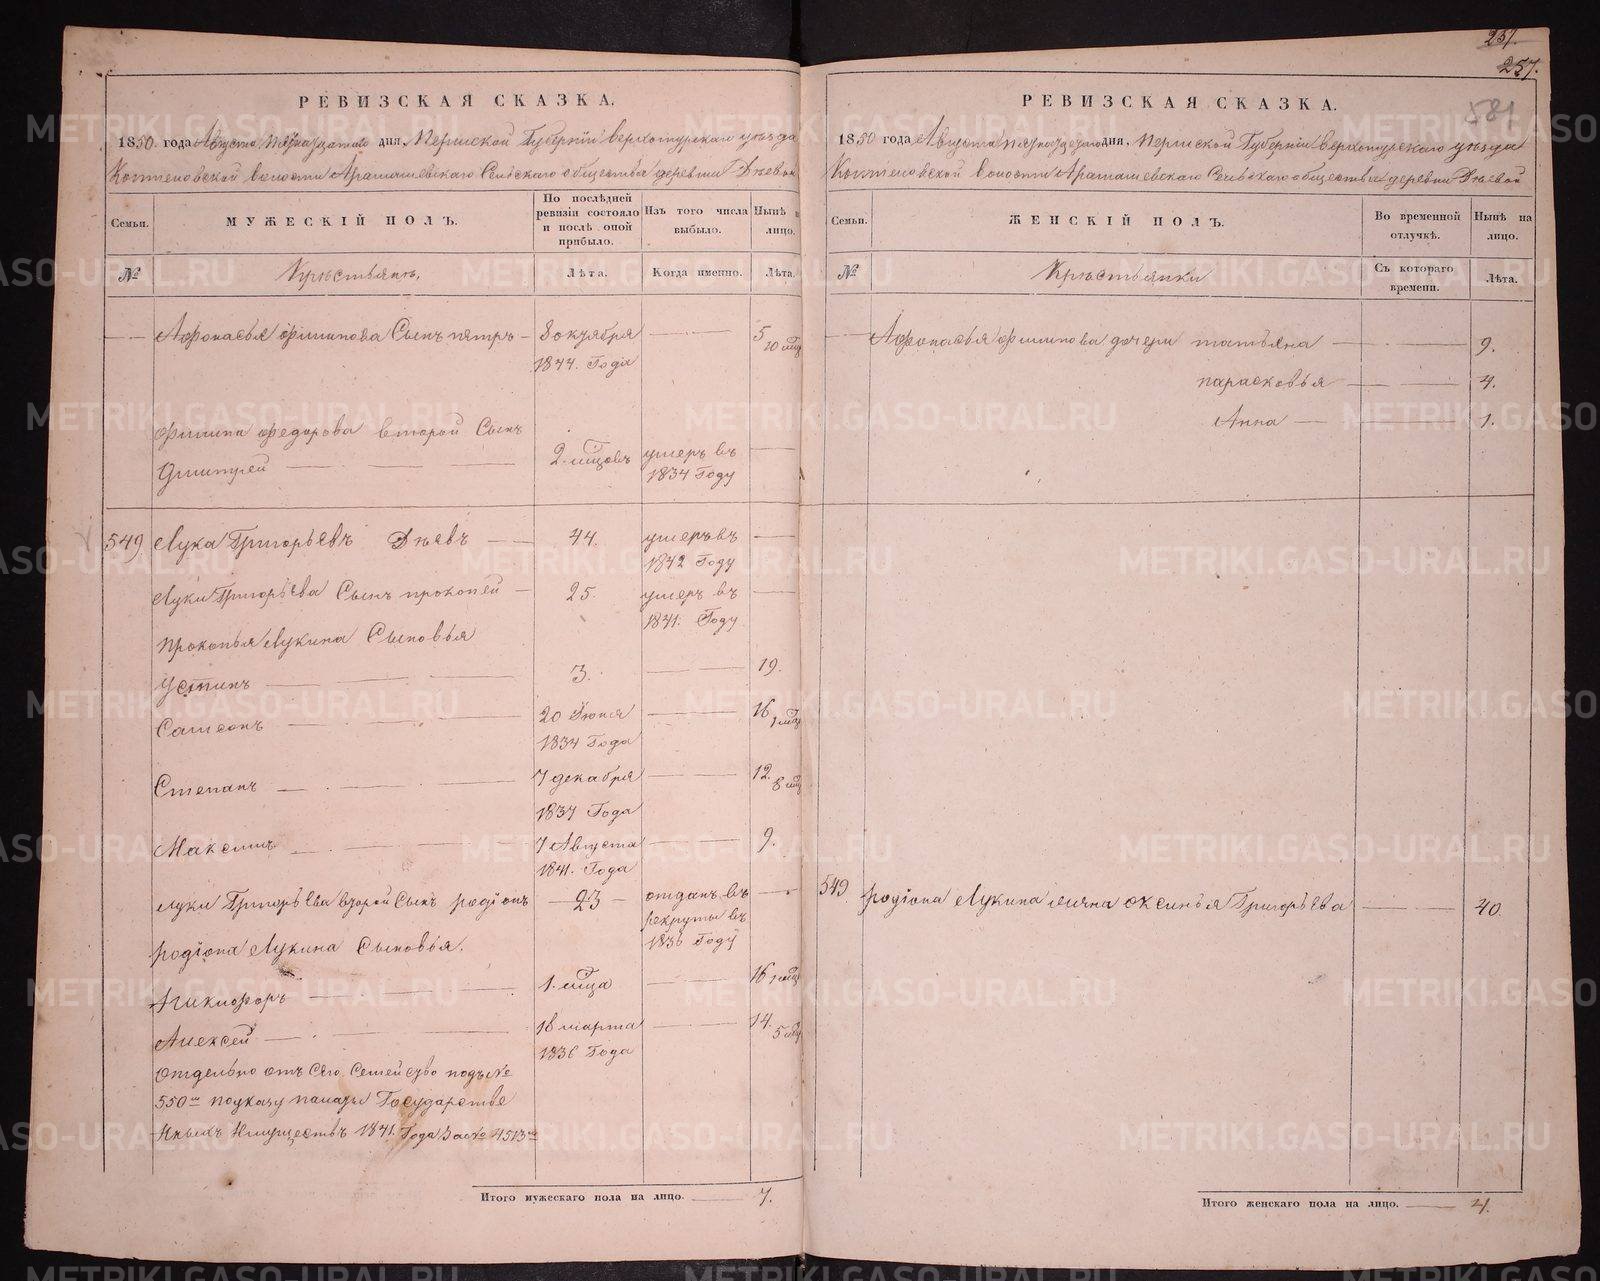 РЕВИЗСКАЯ СКАЗКА.
1850. года Августа пятнадцатаго дня, Пермской Губернiи Верхотурскаго уѣзда
Коптеловской волости Арамашевскаго Сельскаго общества деревни Днѣвой
Семьи.
МУЖЕСКIЙ ПОЛЪ.
По послѣдней ревизiи состояло и послѣ оной прибыло.
Изъ того числа выбыло.
Нынѣ на лицо.
№
Крестьянъ.
Лѣта.
Когда именно.
Лѣта.
Афонасья Филипова Сынъ петръ 8 октября 5 10 мцъ
1844. Года
Филипа Федорова второй Сынъ
Дмитрей 2. мцовъ умеръ въ
1834 Году
549 Лука Григорьевъ Днѣвъ 44. умеръ въ
1842 Году
Луки Григорьева Сынъ прокопей 25. умеръ въ
1841. Году
Прокопья Лукина Сыновья
Устинъ 3. 19.
Самсонъ 20 Iюня 16 1 мцъ
1834 Года
Степанъ 7 декабря 12. 8 мцъ
1837 Года
Максимъ 7 Августа 9.
1841. Года
Луки Григорьева второй Сынъ родiонъ 23 отданъ въ
рекруты въ
1836 Году
родiона Лукина Сыновья.
Никифоръ 1. мца 16 1 мцъ
Алексей 18 марта 14. 5 мцъ
1836 Года
Отдельно отъ Сего Семейство подъ №
550мъ по указу палаты Государстве
нныхъ Имуществъ 1841. Года За № 4513мъ
Итого мужескаго пола на лицо. 7.
257.
257.
581
РЕВИЗСКАЯ СКАЗКА.
1850 года Августа пятнадцатаго дня, Пермской Губернiи Верхотурскаго уѣзда
Коптеловской волости Арамашевскаго Сельскаго общества деревни Днѣвой
Семьи.
ЖЕНСКIЙ ПОЛЪ.
Во временной отлучкѣ.
Нынѣ на лицо.
№
Крестьянки
Съ котораго времени.
Лѣта.
Афонасья Филипова дочери татьяна 9.
парасковья 4.
Анна 1.
549. родiона Лукина жена оксинья Григорьева 40.
Итого женскаго пола на лицо. 4.
METRIKI.GASO-URAL.RU